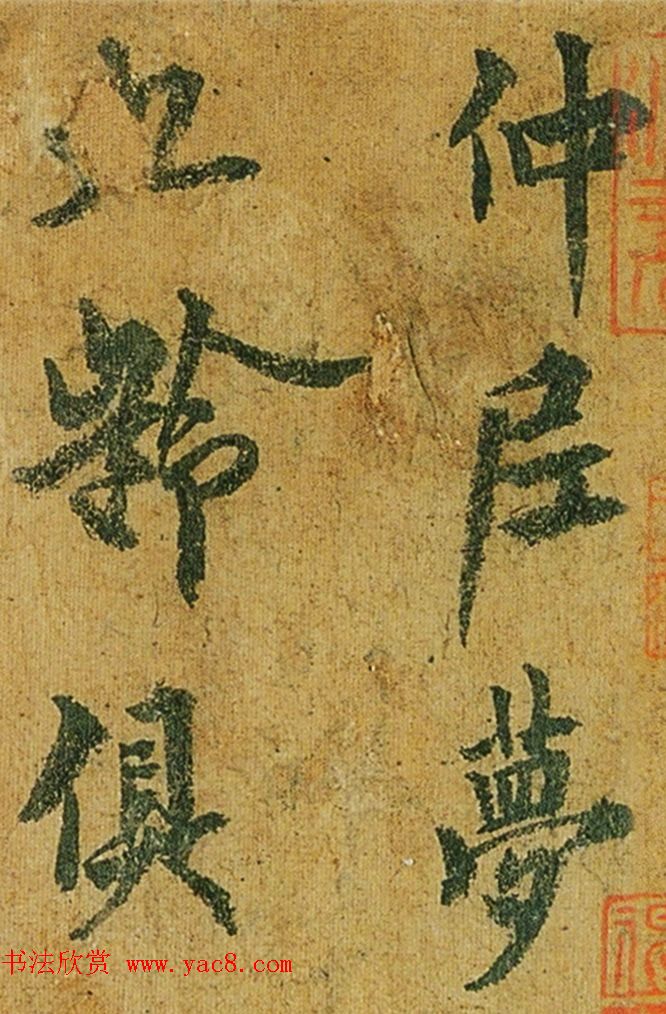 仲尼夢
齡俱
书法欣赏 www.yac8.com